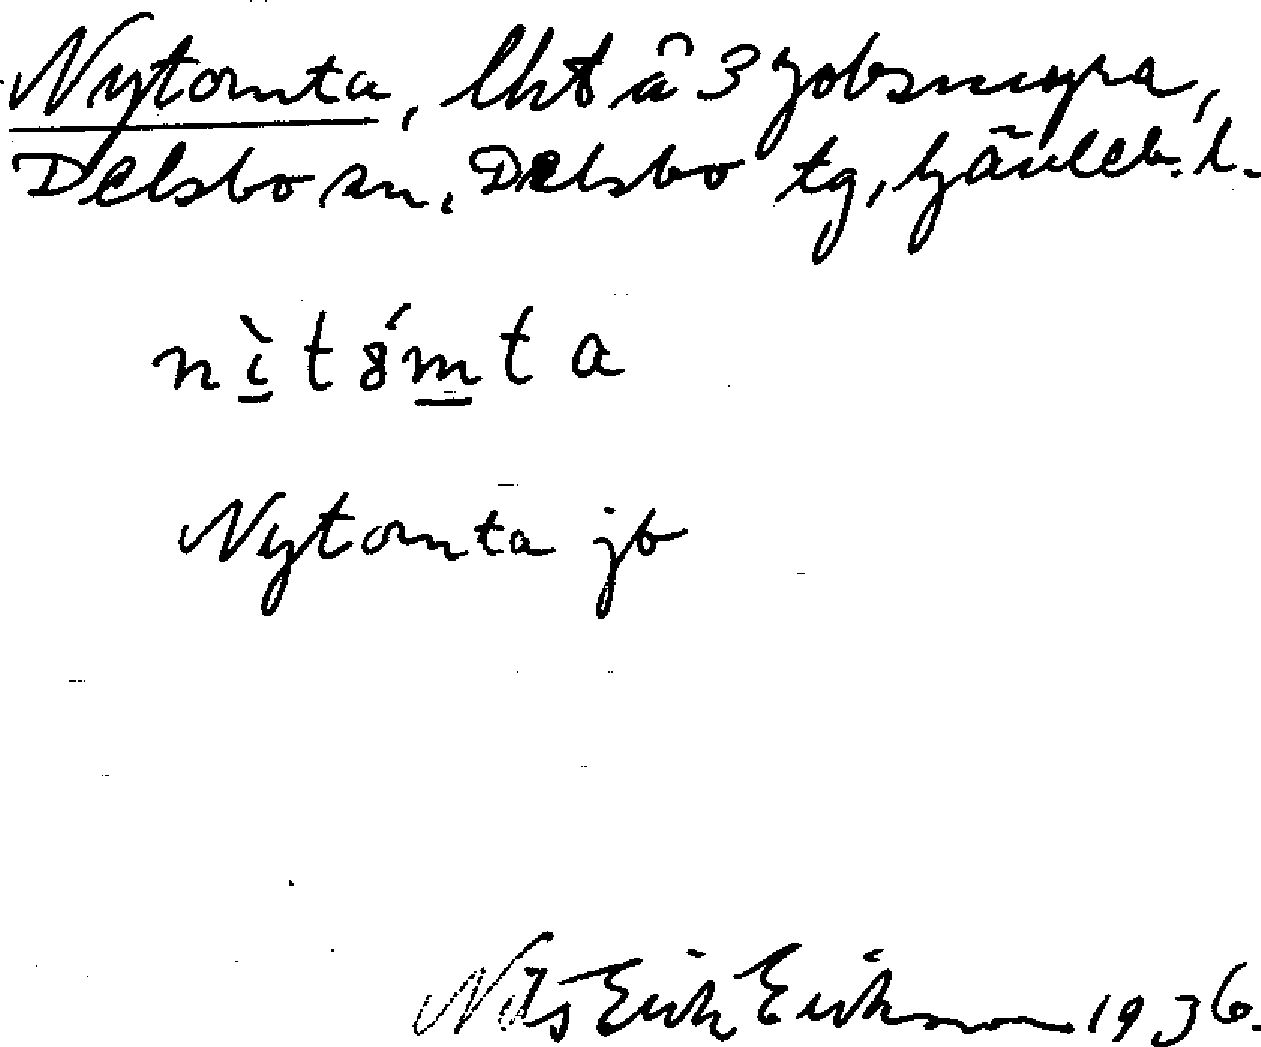 Nytomta, lht å 3 Jobsmyra,
Delsbo sn, Delsbo tg, Gävleb. l.
nìtǿmta
Nytomta jb
Nils Erik Erikson 1936.